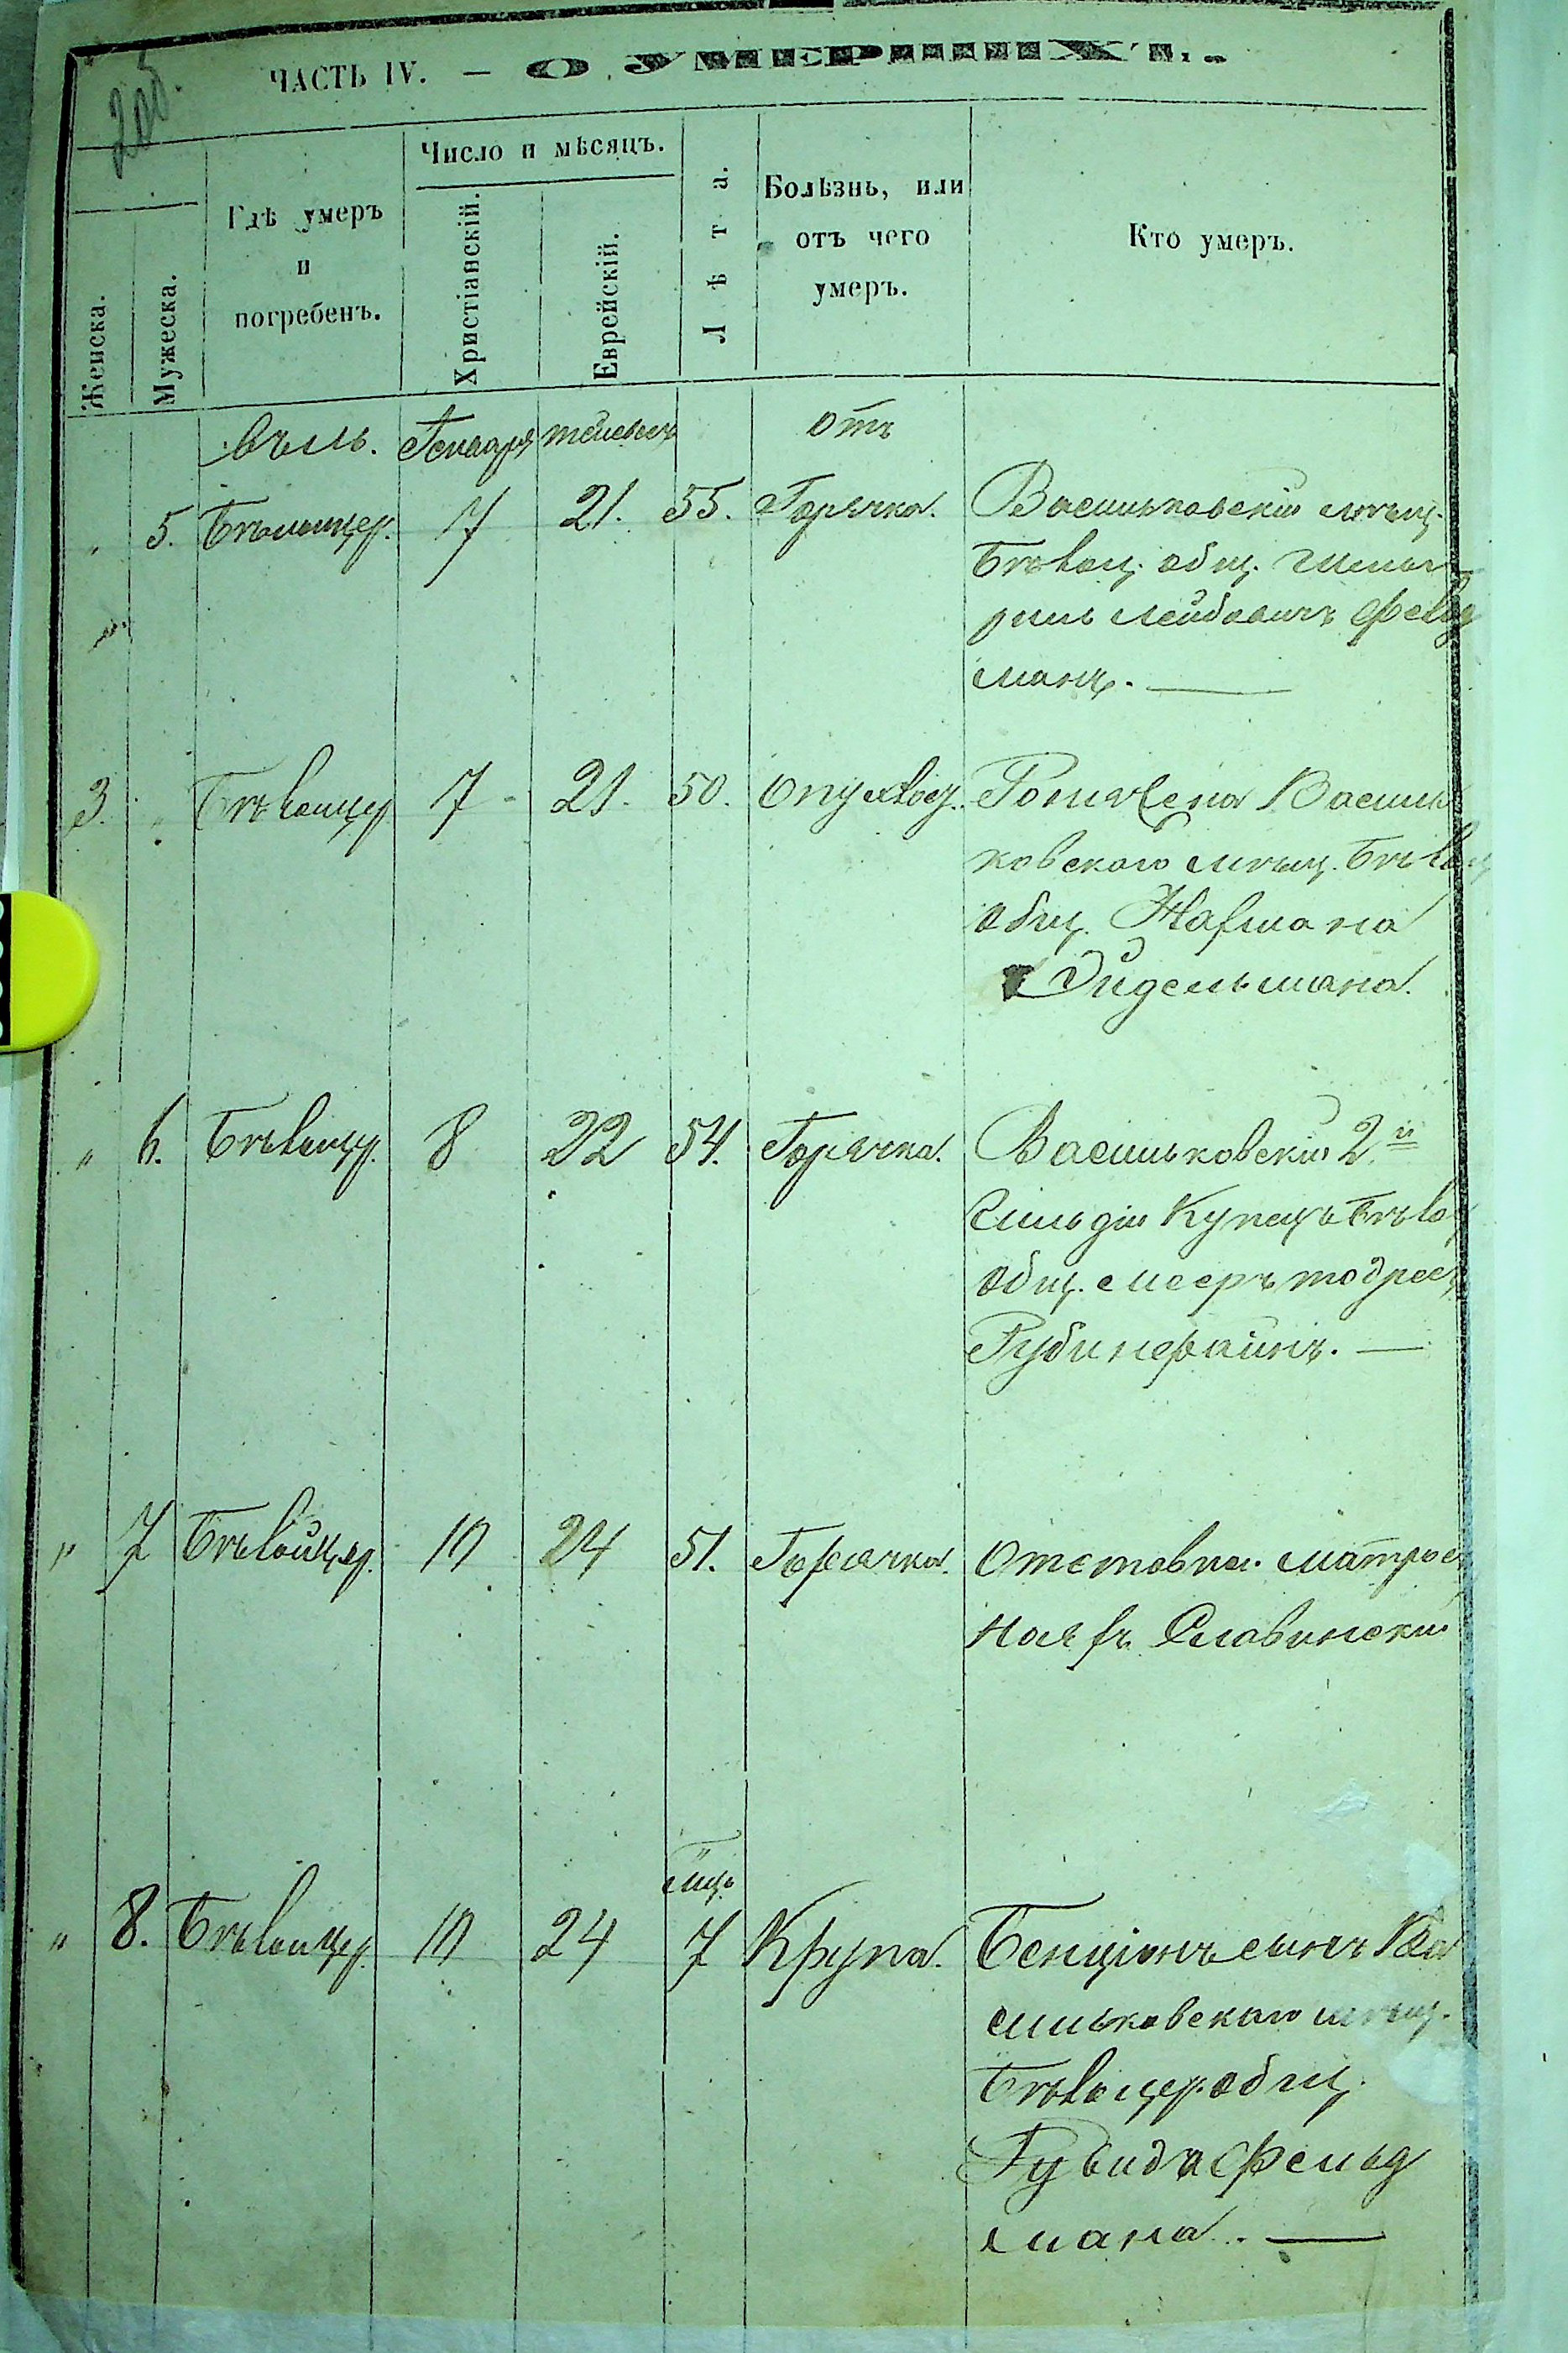 200.
ЧАСТЬ IV. — О УМЕРШИХЪ.
Женска.
Мужеска.
Гдѣ умеръ
и
погребенъ.
Число и мѣсяцъ.
Христіанскій.
Еврейскій.
Лѣта.
Болѣзнь, или
отъ чего
умеръ.
Кто умеръ.
въ м. Генваря тейвесъ отъ
„ 5. Бѣлоцер. 7 21. 55. Горячка. Васильковскій мѣщ.
Бѣлоц. общ.
Лейбовичъ Фельд
манъ. —
3. „ Бѣлоцер. 7 21. 50. Опухлос. жена Василь
ковскаго мѣщ. Бѣлоц
общ. Нахмана
Эйдельмана.
„ 6. Бѣлоцер. 8 22 54. Горячка. Васильковскій 2й
Гильдіи Купецъ Бѣлоц
общ. Мееръ Тодрес
Рубинфайнъ. —
„ 7 Бѣлоцер. 10 24 51. Горячка. Отставн. матрос
Славинскій
мць
„ 8. Бѣлоцер. 10 24 7 Крупа. Бенціонъ сынъ Ва
сильковскаго мѣщ.
Бѣлоцер. общ.
Рувида Фельд
мана. —